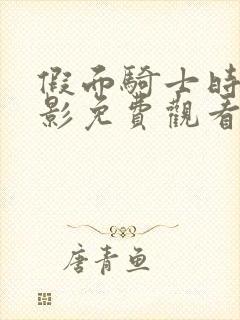 假面騎士時
影免費觀看
唐青鱼